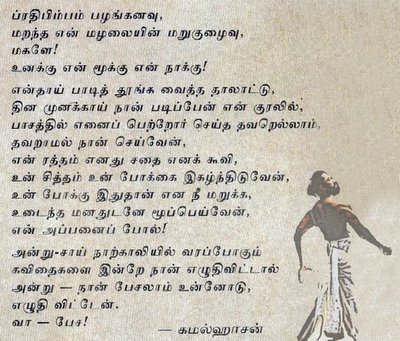 ப்ரதிபிம்பம் பழங்கனவு,
மறந்த என் மழலையின் மறுகுழைவு,
மகளே!
உனக்கு என் மூக்கு என் நாக்கு!
என்தாய் பாடித் தூங்க வைத்த தாலாட்டு,
தின முனக்காய் நான் படிப்பேன் என் குரலில்,
பாசத்தில் எனைப் பெற்றோர் செய்த தவறெல்லாம்,
தவறாமல் நான் செய்வேன்,
என் ரத்தம் எனது சதை எனக் கூவி,
உன் சித்தம் உன் போக்கை இகழ்ந்திடுவேன்,
உன் போக்கு இதுதான் என நீ மறுக்க,
உடைந்த மனதுடனே மூப்பெய்வேன்,
என் அப்பனைப் போல்!
அன்று-சாய் நாற்காலியில் வரப்போகும்
கவிதைகளை இன்றே நான் எழுதிவிட்டால்
அன்று — நான் பேசலாம் உன்னோடு,
எழுதி விட்டேன்.
வா — பேச!
— கமல்ஹாசன்